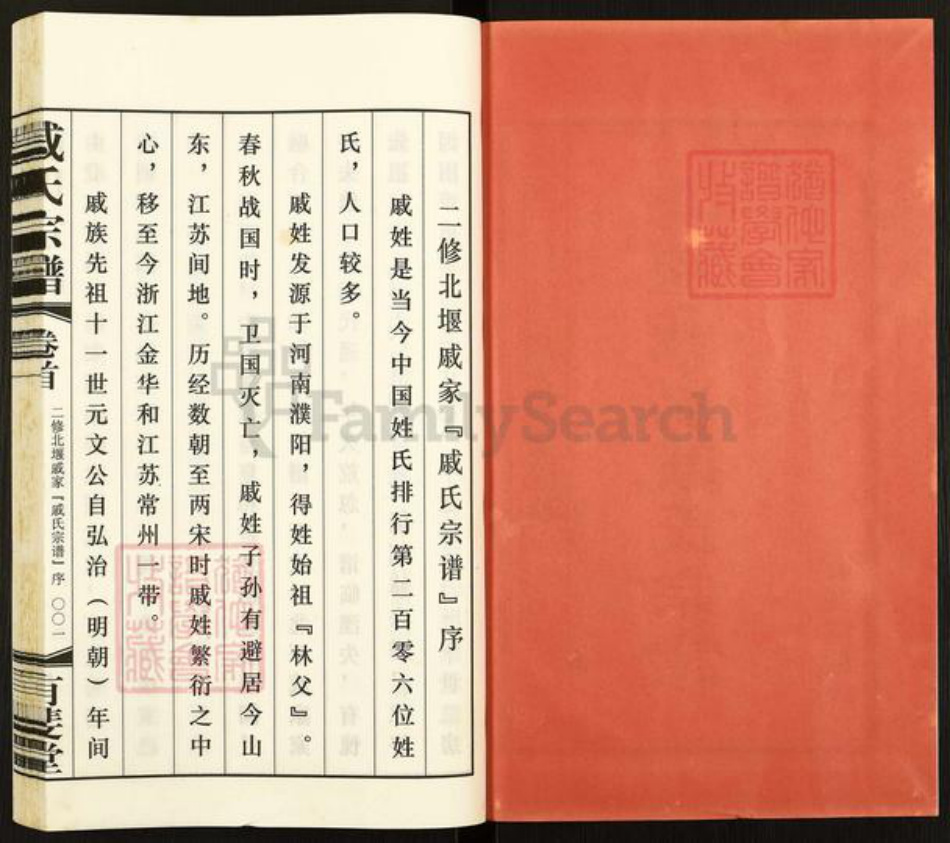 二修北堰戚家『戚氏宗谱』序
戚姓是当今中国姓氏排行第二百零六位姓
氏，人口较多。
戚姓发源于河南濮阳，得姓始祖『林父』。
春秋战国时，卫国灭亡，戚姓子孙有避居今山
东，江苏间地。历经数朝至两宋时戚姓繁衍之中
心，移至今浙江金华和江苏常州一带。
戚族先祖十一世元文公自弘治（明朝）年间
戚氏宗谱
卷首
二修北堰戚家『戚氏宗谱』序
〇〇一
有斐堂
FamilySearch